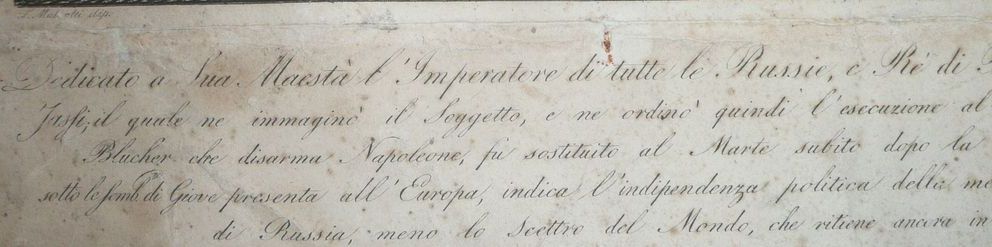 Dedicato a Sua Maestà l'Imperatore di tutte le Russie, e Rè di
il quale ne immaginò il Soggetto, e ne ordinò quindi l'esecuzione al
Blücher che disarma Napoleone, fù sostituito al Marte subito dopo la
sotto le semb. di Giove presenta all'Europa, indica l'indipendenza politica della
di Russia, meno lo Scettro del Mondo, che ritiene ancora in